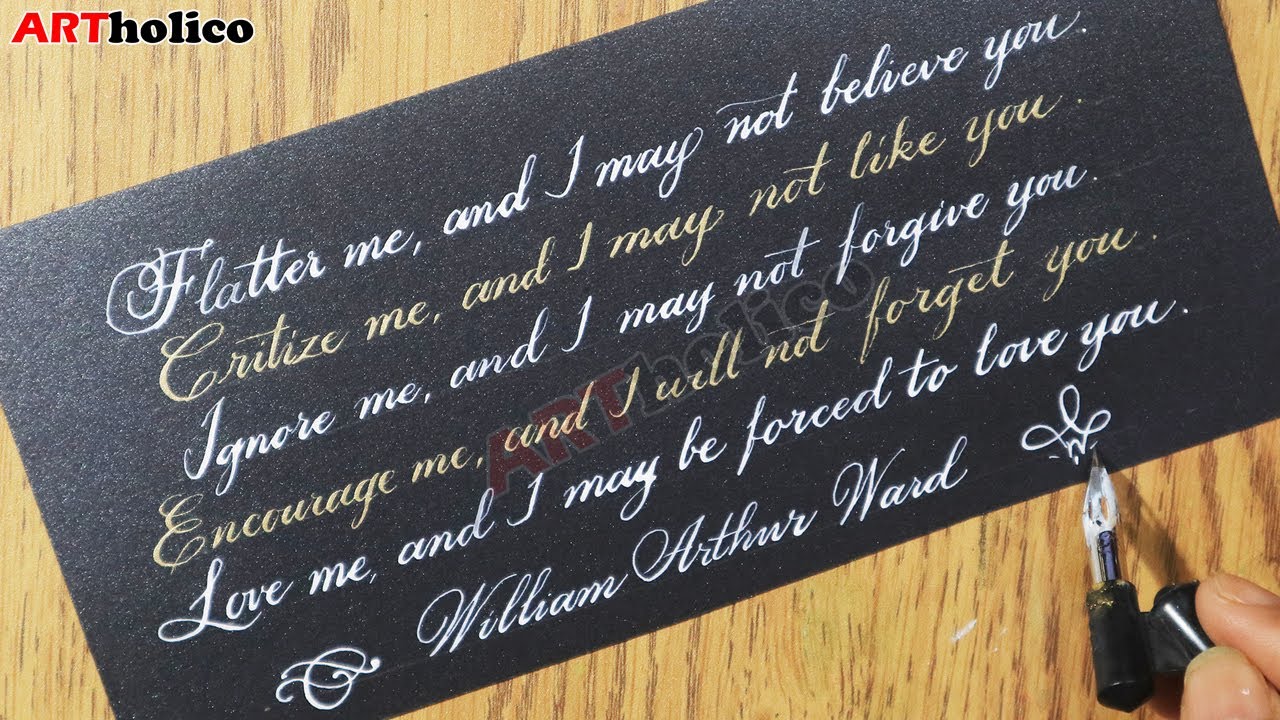 ARTholico
Flatter me, and I may not believe you.
Critize me, and I may not like you.
Ignore me, and I may not forgive you.
Encourage me, and I will not forget you.
Love me, and I may be forced to love you.
William Arthur Ward
ARTholico